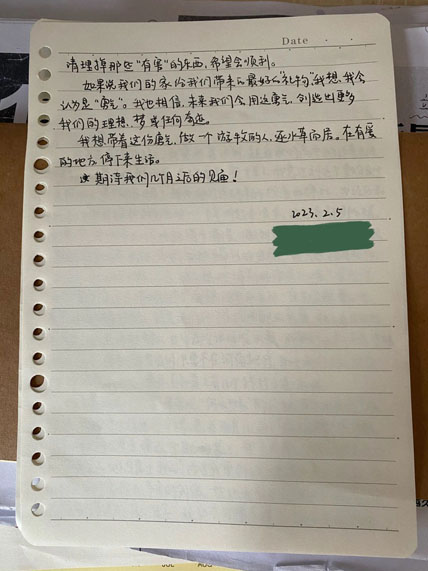 Date
清理掉那些"有害"的东西,希望会顺利。
如果说我们的家给我们带来的最好的"礼物"我想,我会
认为是"勇气"。我也相信,未来我们会用这勇气,创造出更多
我们的理想、梦或任何奇迹。
我想带着这份勇气,做一个游牧的人,逐水草而居。在有爱
的地方停下来生活。
★期待我们几个月之后的见面!
2023.2.5
JUL AUG